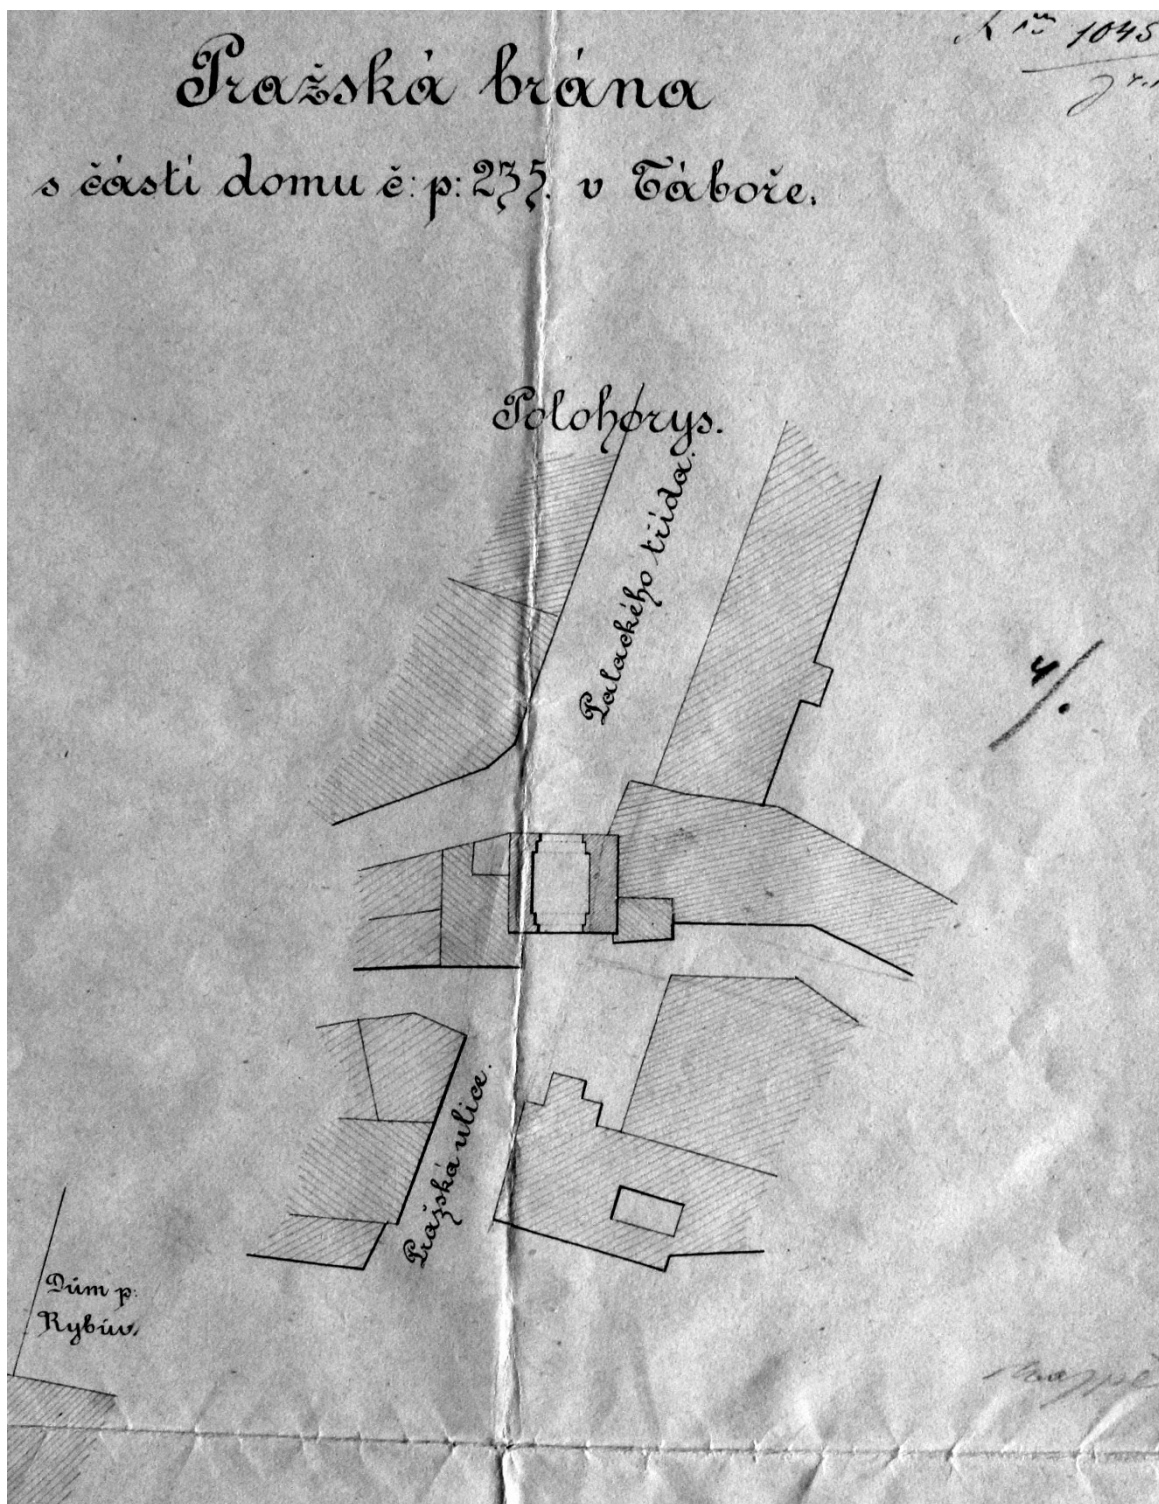 1045
Pražská brána
s části domu č: p: 235. v Táboře.
Polohorys.
Palackého třída.
4/.
Pražská ulice.
Dům p:
Rybův,